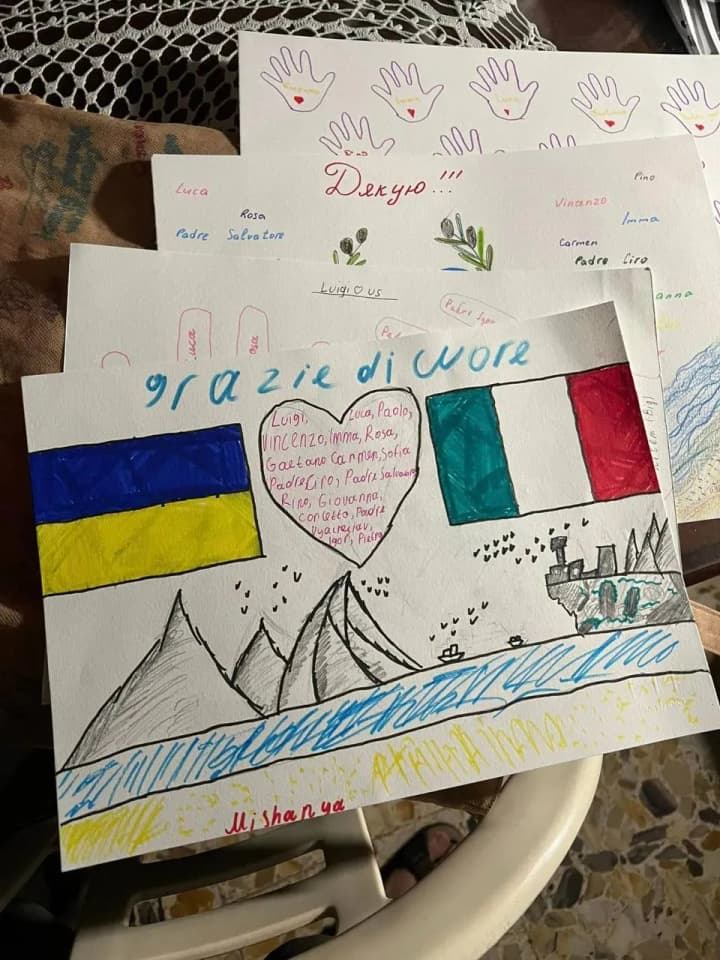 Дякую!!!
Luca
Rosa
Padre Salvatore
Pino
Vincenzo
Imma
Carmen
Padre Ciro
anna
Luigi ♡ us
uca
osa
Padre Igor
grazie di cuore
Luigi, Luca, Paolo,
Vincenzo, Imma, Rosa,
Gaetano Carmen, Sofia
Padre Ciro, Padre Salvatore
Rino, Giovanna,
Padre
Igor,
Mishanya